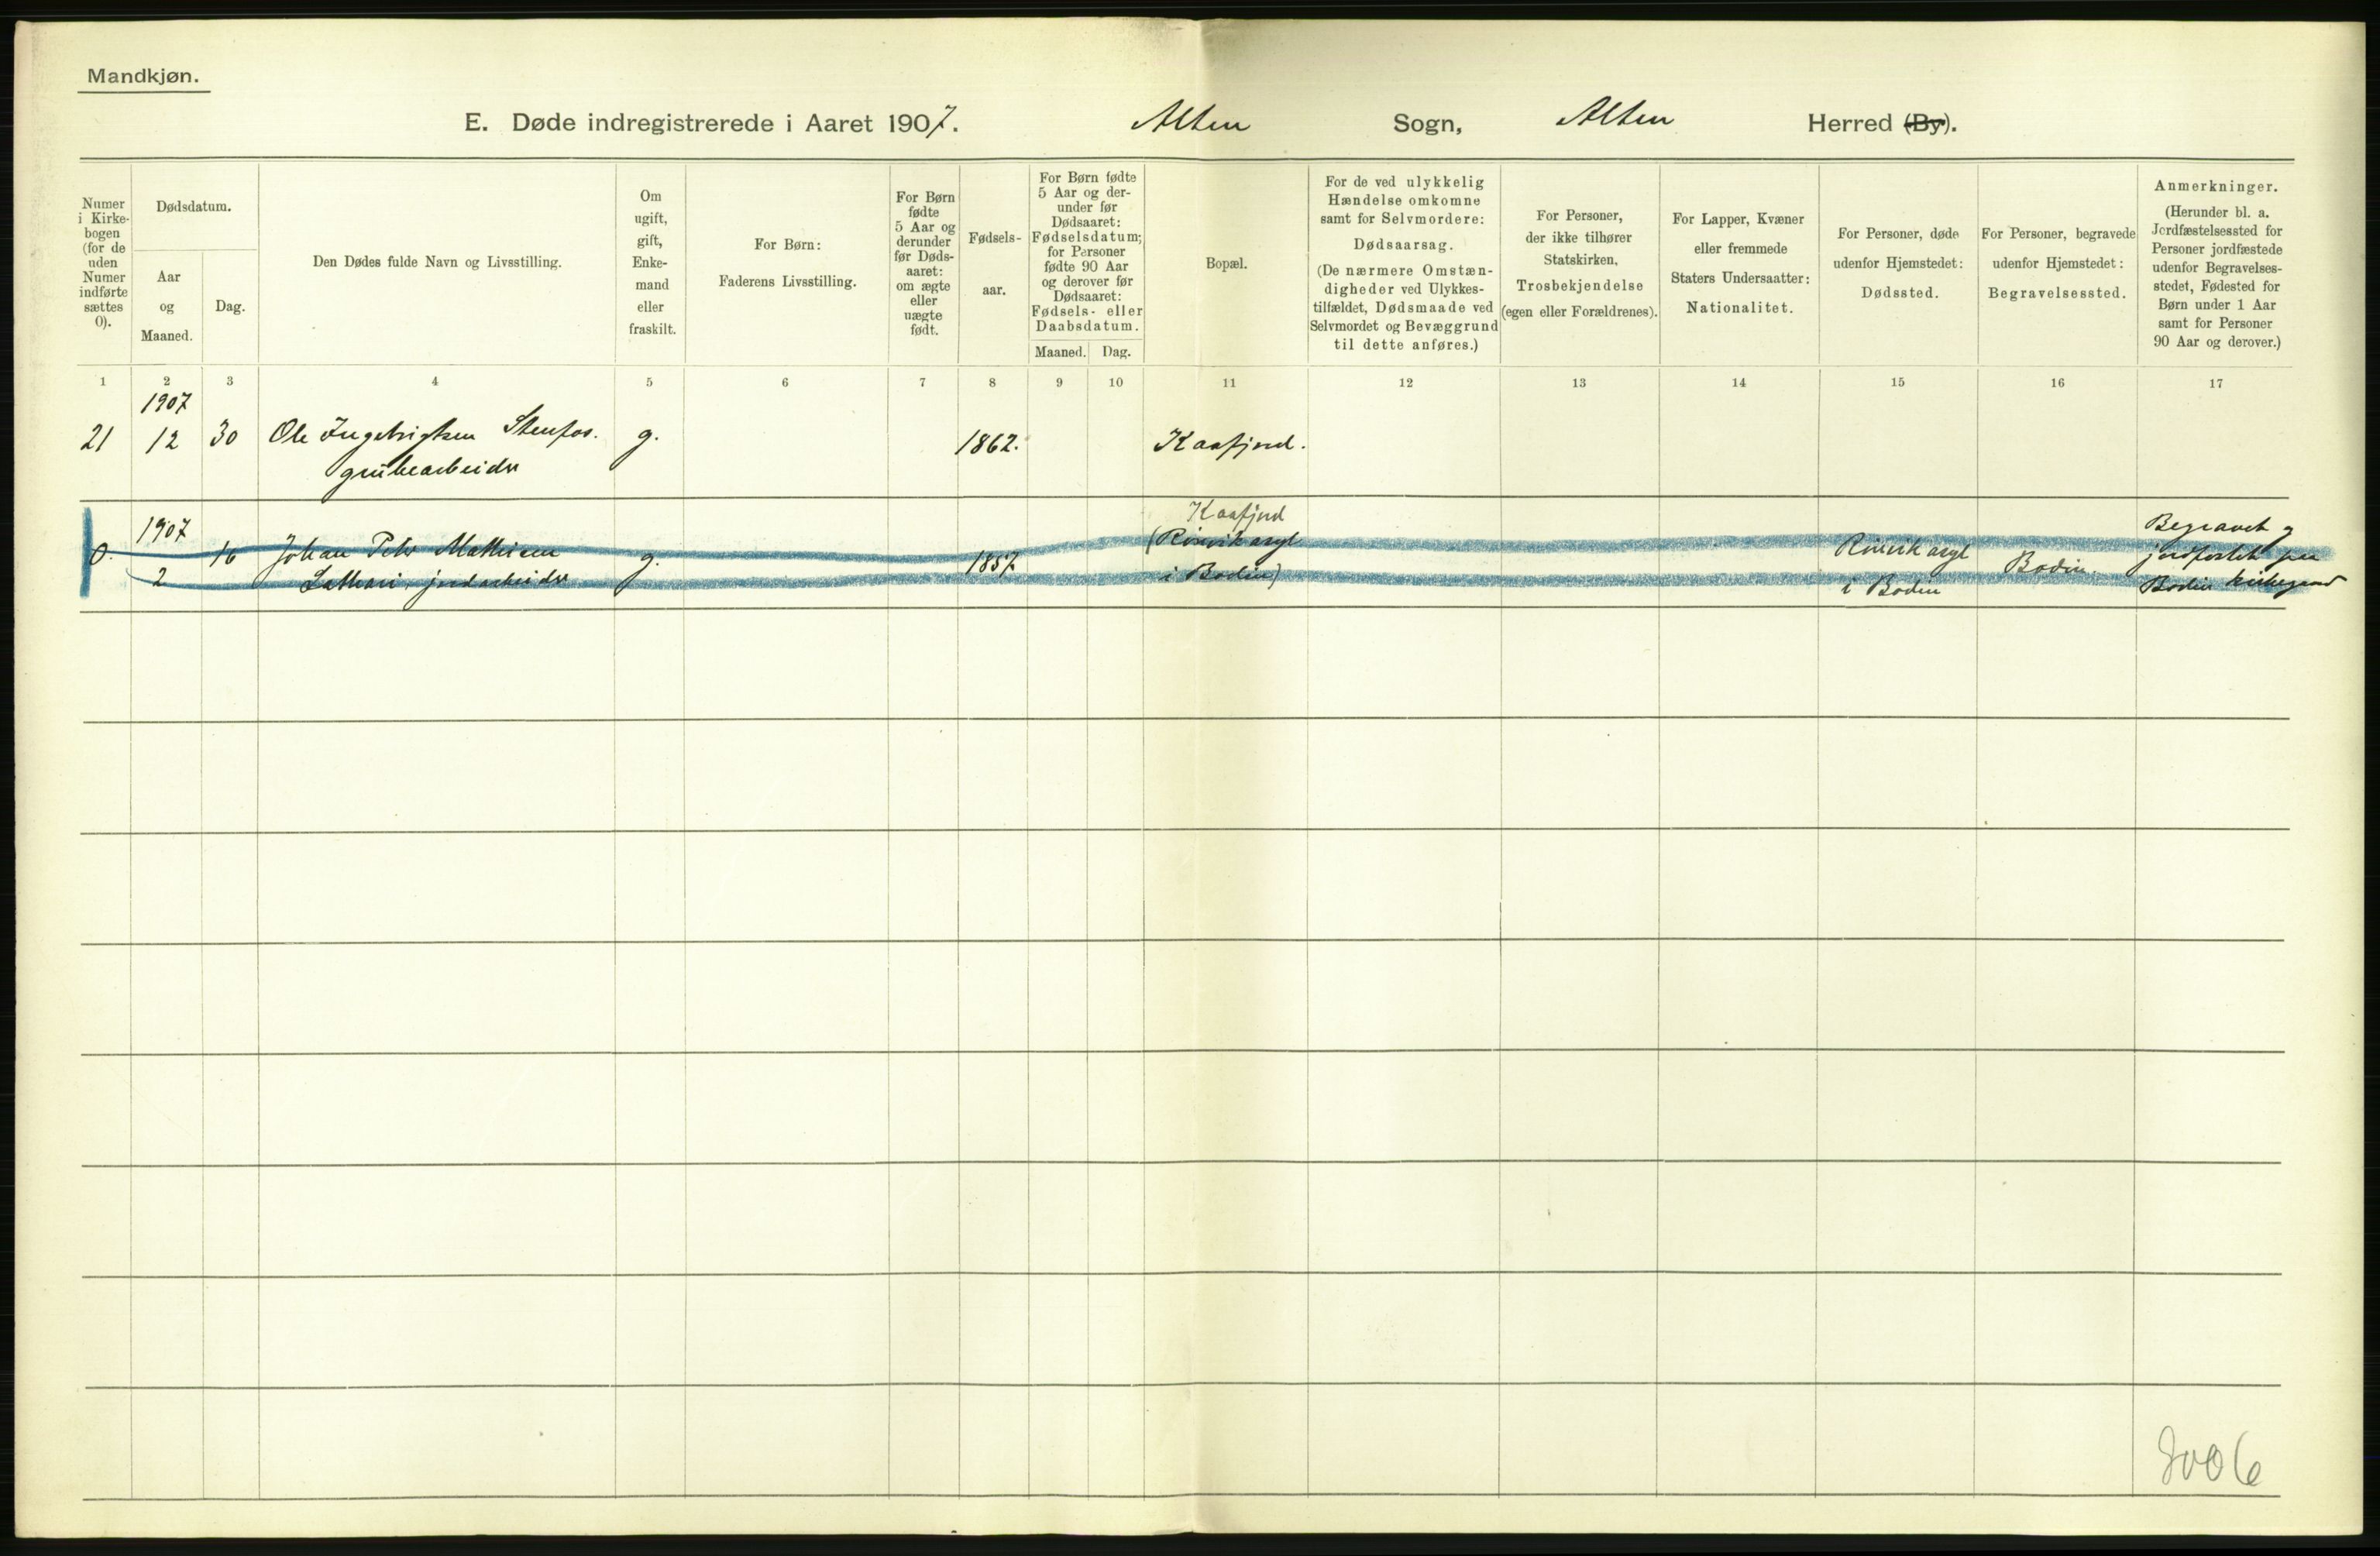 Mandkjøn.
E. Døde indregistrerede i Aaret 1907. Alten Sogn, Alten Herred (By).
Numer
i Kirke-
bogen
(for de
uden
Numer
indførte
sættes
0).
Dødsdatum.
Aar
og
Maaned.
Dag.
Den Dødes fulde Navn og Livsstilling.
Om
ugift,
gift,
Enke-
mand
eller
fraskilt.
For Børn:
Faderens Livsstilling.
For Børn
fødte
5 Aar og
derunder
før Døds-
aaret:
om ægte
eller
uægte
født.
Fødsels-
aar.
For Børn fødte
5 Aar og der-
under før
Dødsaaret:
Fødselsdatum;
for Personer
fødte 90 Aar
og derover før
Dødsaaret:
Fødsels- eller
Daabsdatum.
Maaned. Dag.
Bopæl.
For de ved ulykkelig
Hændelse omkomne
samt for Selvmordere:
Dødsaarsag.
(De nærmere Omstæn-
digheder ved Ulykkes-
tilfældet, Dødsmaade ved
Selvmordet og Bevæggrund
til dette anføres.)
For Personer,
der ikke tilhører
Statskirken,
Trosbekjendelse
(egen eller Forældrenes).
For Lapper, Kvæner
eller fremmede
Staters Undersaatter:
Nationalitet.
For Personer, døde
udenfor Hjemstedet:
Dødssted.
For Personer, begravede
udenfor Hjemstedet:
Begravelsessted.
Anmerkninger.
(Herunder bl. a.
Jordfæstelsessted for
Personer jordfæstede
udenfor Begravelses-
stedet, Fødested for
Børn under 1 Aar
samt for Personer
90 Aar og derover.)
1 2 3 4 5 6 7 8 9 10 11 12 13 14 15 16 17
1907
21 12 30 Ole Ingebrigtsen Stenfos. g. 1862. Kaafjord.
grubearbeider
1907 Kaafjord Begravet og
0. 16 Johan Peter Mathisen g. 1857 (Rönvik asyl Rönvik asyl Bodin. jordfestet paa
2 jordarbeider i Bodin) i Bodin Bodin kirkegaard
3006